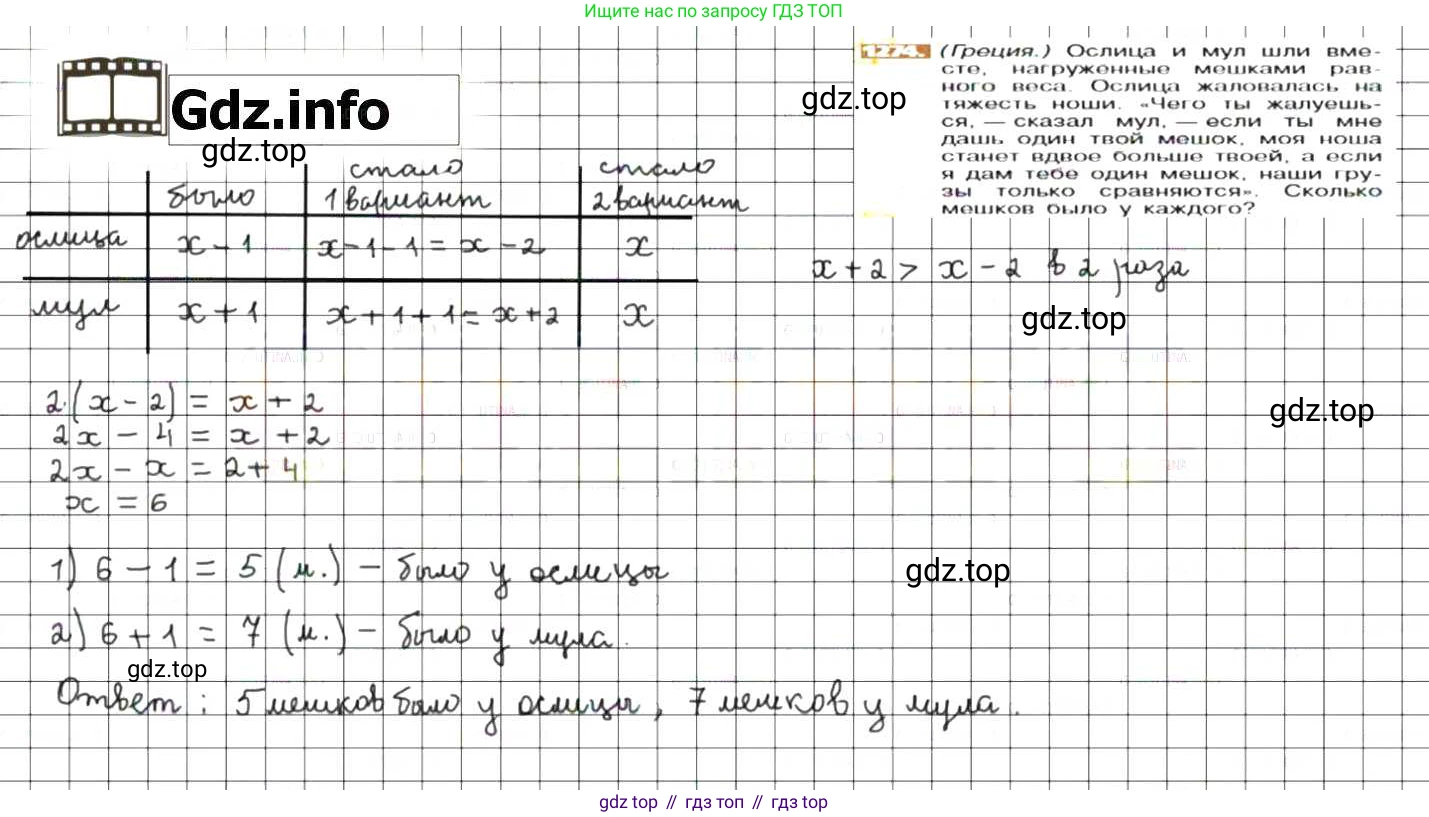 Ищите нас по запросу ГДЗ ТОП
Gdz.info
gdz.top
gdz.top
1274. (Греция.) Ослица и мул шли вме-
сте, нагруженные мешками рав-
ного веса. Ослица жаловалась на
тяжесть ноши. «Чего ты жалуешь-
ся, — сказал мул, — если ты мне
дашь один твой мешок, моя ноша
станет вдвое больше твоей, а если
я дам тебе один мешок, наши гру-
зы только сравняются». Сколько
мешков было у каждого?
было стало 1 вариант стало 2 вариант
ослица x - 1 x - 1 - 1 = x - 2 x
мул x + 1 x + 1 + 1 = x + 2 x
x + 2 > x - 2 в 2 раза
gdz.top
2·(x - 2) = x + 2
2x - 4 = x + 2
2x - x = 2 + 4
x = 6
gdz.top
1) 6 - 1 = 5 (м.) - было у ослицы
gdz.top
2) 6 + 1 = 7 (м.) - было у мула.
gdz.top
Ответ: 5 мешков было у ослицы, 7 мешков у мула.
gdz.top // гдз топ // gdz.top